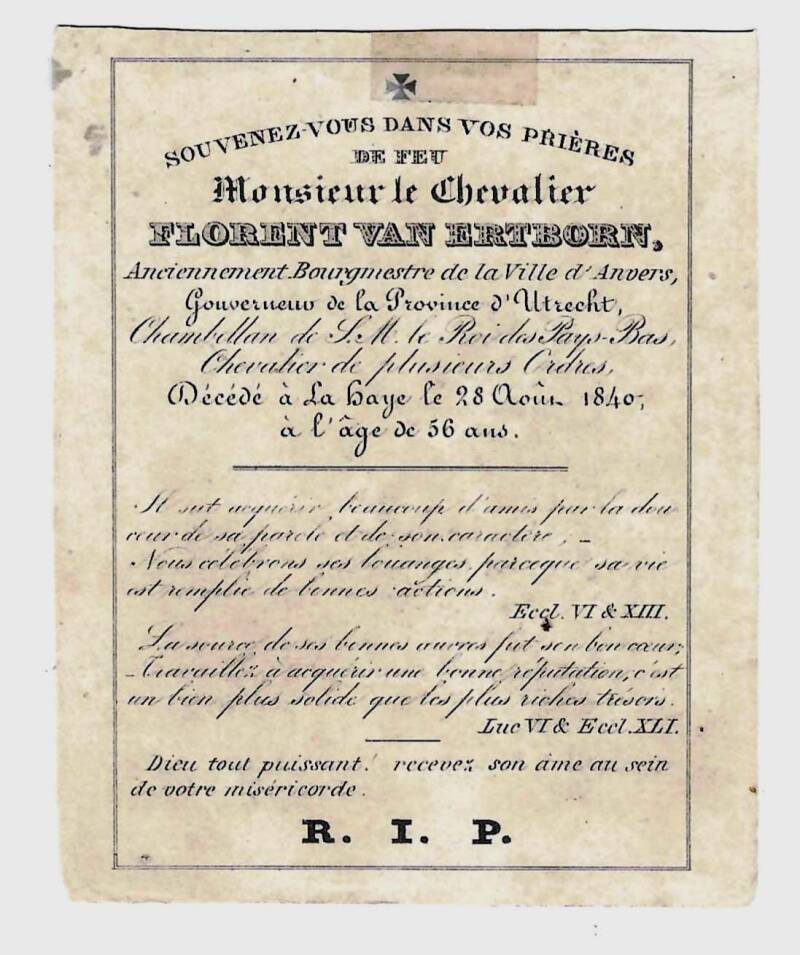 SOUVENEZ-VOUS DANS VOS PRIÈRES
DE FEU
Monsieur le Chevalier
FLORENT VAN ERTBORN,
Anciennement Bourgmestre de la Ville d'Anvers,
Gouverneur de la Province d'Utrecht,
Chambellan de S. M. le Roi des Pays-Bas,
Chevalier de plusieurs Ordres,
Décédé à La Haye le 28 Août 1840,
à l'âge de 56 ans.
Il sut acquérir beaucoup d'amis par la dou
ceur de sa parole et de son caractère, –
Nous célébrons ses louanges parceque sa vie
est remplie de bonnes actions.
Eccl. VI & XIII.
La source de ses bonnes œuvres fut son bon cœur;
– Travaillez à acquérir une bonne réputation, c'est
un bien plus solide que les plus riches trésors.
Luc VI & Eccl. XLI.
Dieu tout puissant! recevez son âme au sein
de votre miséricorde.
R. I. P.